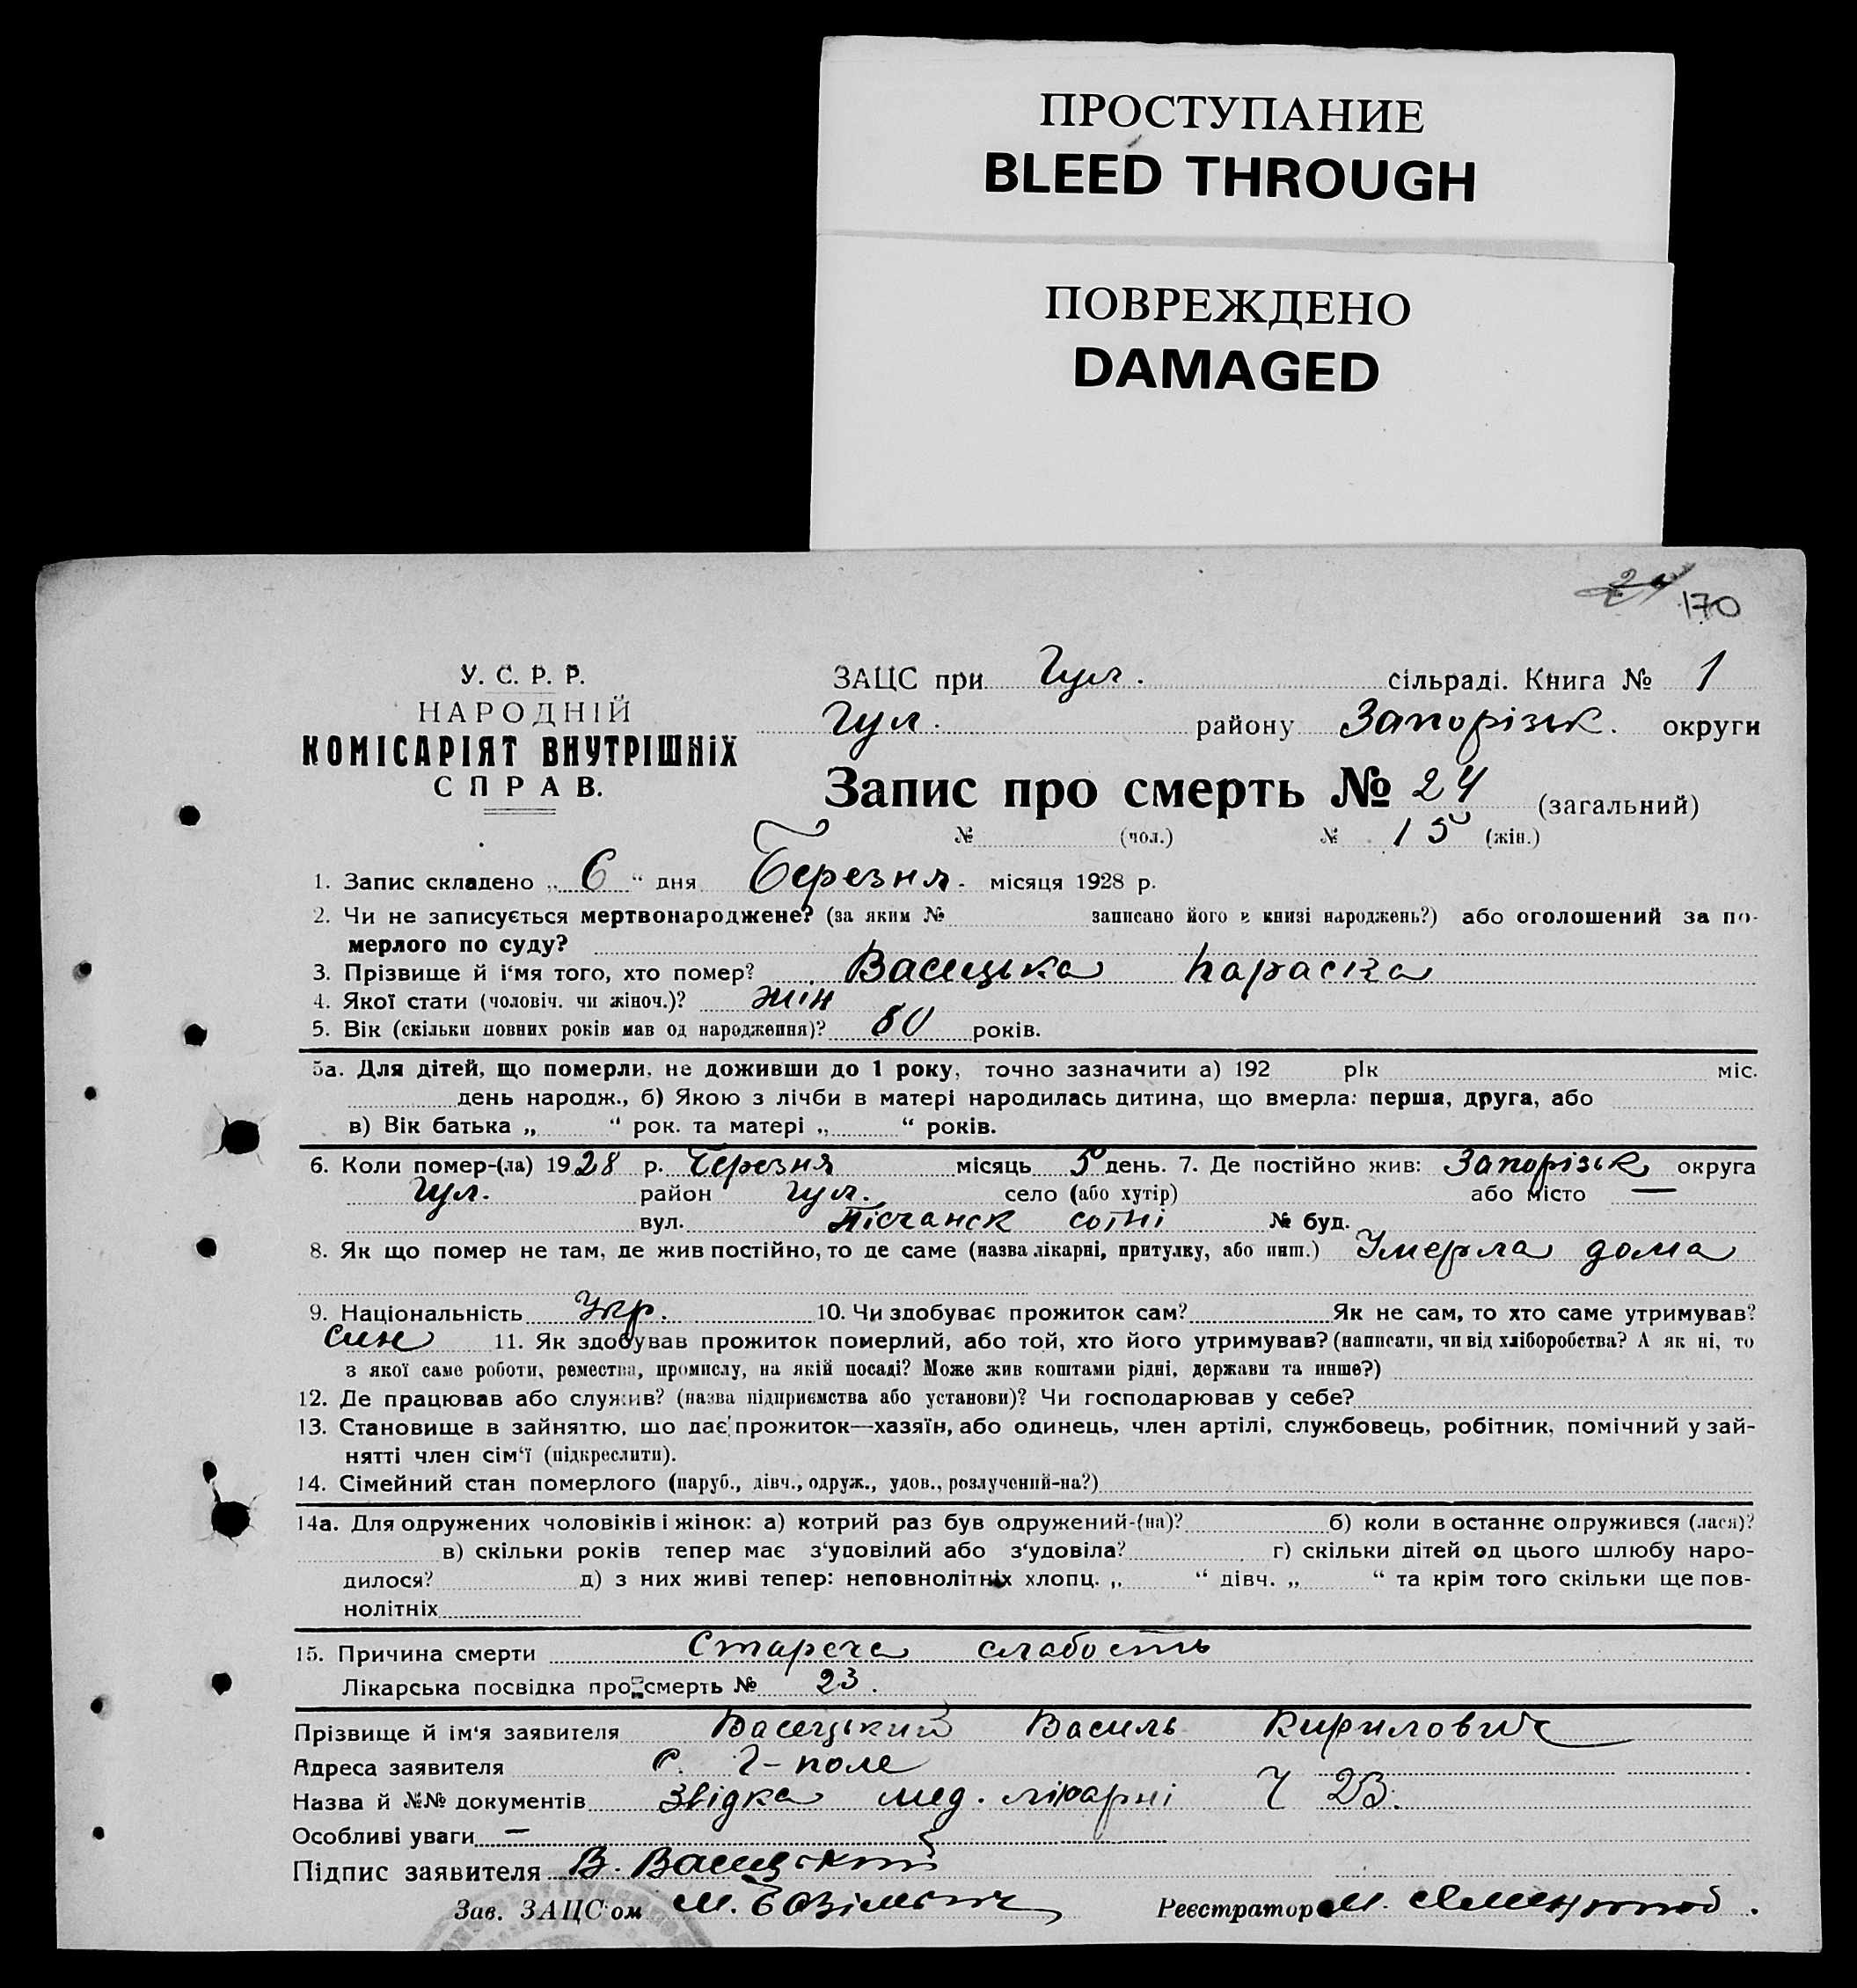 ПРОСТУПАНИЕ
BLEED THROUGH
ПОВРЕЖДЕНО
DAMAGED
24
170
У. С. Р. Р.
НАРОДНІЙ
КОМІСАРІЯТ ВНУТРІШНІХ
СПРАВ.
ЗАЦС при Гул. сільраді. Книга № 1
Гул. району Запорізьк. округи
Запис про смерть № 24 (загальний)
№ (чол.) № 15 (жін.)
1. Запис складено „ 6 “ дня Березня. місяця 1928 р.
2. Чи не записується мертвонароджене? (за яким № записано його в книзі народжень?) або оголошений за по-
мерлого по суду?
3. Прізвище й і‘мя того, хто помер? Васецька Параска
4. Якої стати (чоловіч. чи жіноч.)? жін
5. Вік (скільки повних років мав од народження)? 80 років.
5а. Для дітей, що померли, не доживши до 1 року, точно зазначити а) 192 рік міс.
день народж., б) Якою з лічби в матері народилась дитина, що вмерла: перша, друга, або
в) Вік батька „ “ рок. та матері „ “ років.
6. Коли помер-(ла) 1928 р. Березня місяць 5 день. 7. Де постійно жив: Запорізьк округа
Гул. район Гул. село (або хутір) або місто —
вул. Пісчанск сотні № буд.
8. Як що помер не там, де жив постійно, то де саме (назва лікарні, притулку, або инш.) Умерла дома
9. Національність Укр. 10. Чи здобуває прожиток сам? Як не сам, то хто саме утримував?
син 11. Як здобував прожиток померлий, або той, хто його утримував? (написати, чи від хліборобства? А як ні, то
з якої саме роботи, ремества, промислу, на якій посаді? Може жив коштами рідні, держави та инше?)
12. Де працював або служив? (назва підприємства або установи)? Чи господарював у себе?
13. Становище в зайняттю, що дає прожиток—хазяїн, або одинець, член артілі, службовець, робітник, помічний у зай-
нятті член сім‘ї (підкреслити).
14. Сімейний стан померлого (паруб., дівч., одруж., удов., розлучений-на?)
14а. Для одружених чоловіків і жінок: а) котрий раз був одружений-(на)? б) коли в останнє одружився (лася)?
в) скільки років тепер має з‘удовілий або з‘удовіла? г) скільки дітей од цього шлюбу наро-
дилося? д) з них живі тепер: неповнолітніх хлопц. „ “ дівч. „ “ та крім того скільки ще пов-
нолітніх
15. Причина смерти Стареча слабость
Лікарська посвідка про смерть № 23.
Прізвище й ім‘я заявителя Васецький Василь Кирилович
Адреса заявителя С. Г-поле
Назва й №№ документів Звідка мед. лікарні Ч 23.
Особливі уваги —
Підпис заявителя В. Васецький
Зав. ЗАЦС‘ом М.
Реєстратор М.